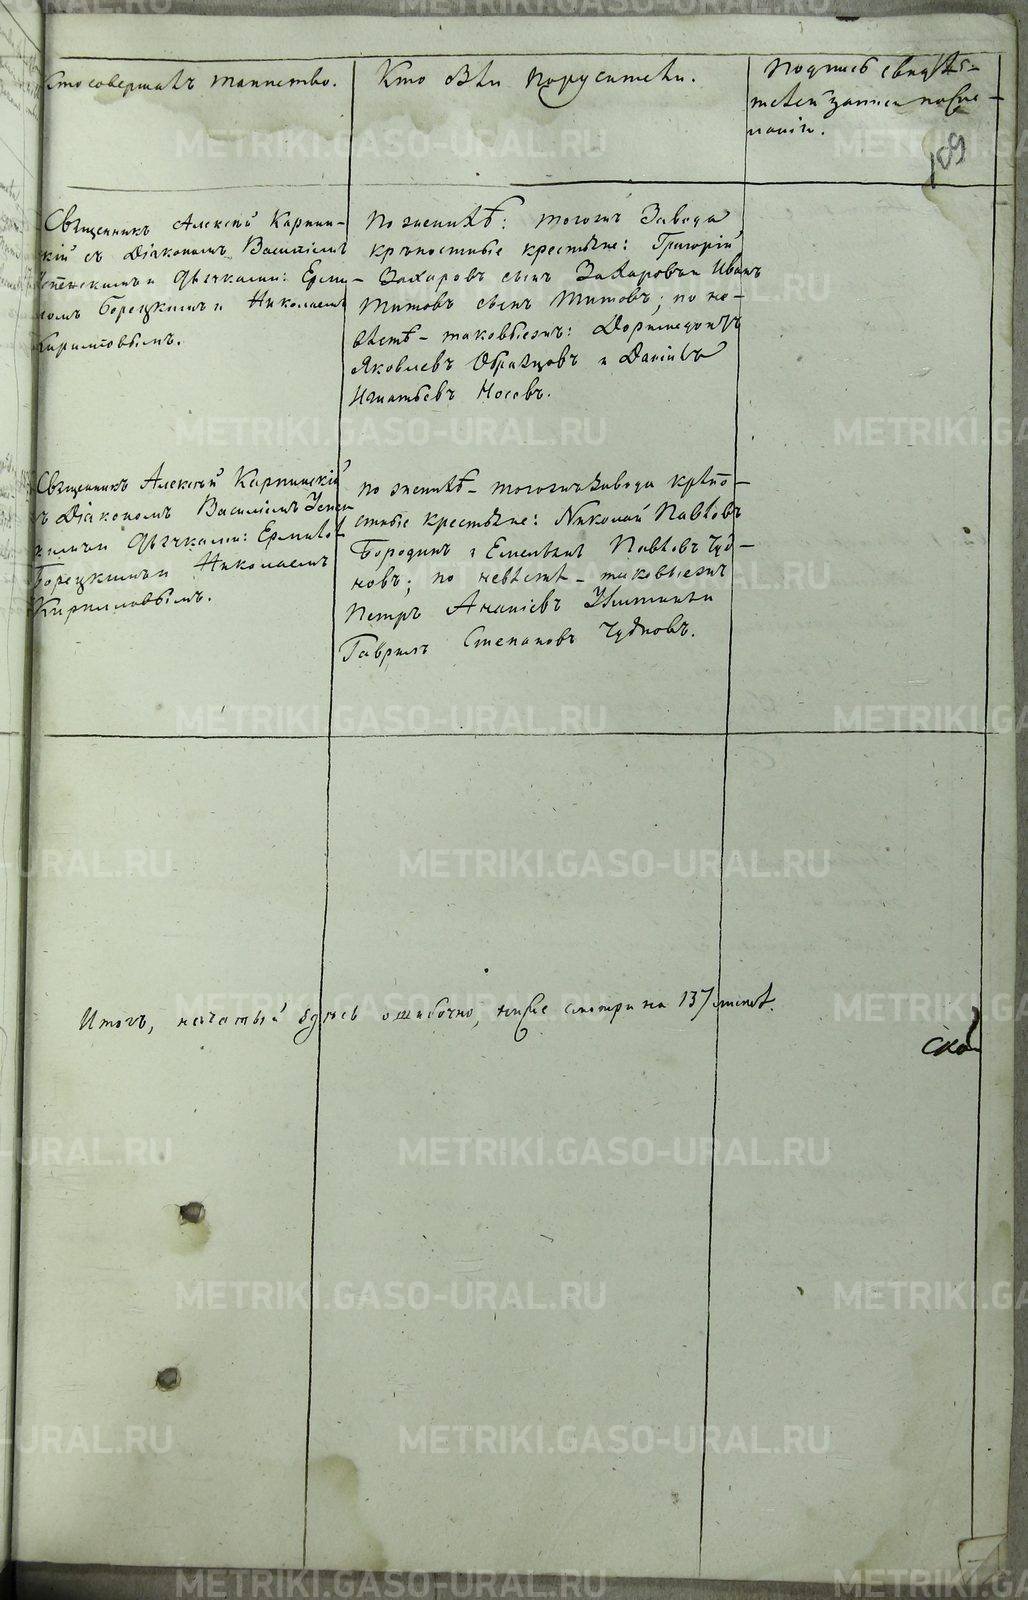 Кто совершалъ таинство.
Кто были поручители.
Подпись свидѣ-
телей записи по же-
ланію.
109
Священникъ Алексѣй Карпин-
скій съ Діакономъ Василіемъ
Успенскимъ и дьячками: Ерми-
ломъ Борецкимъ и Николаемъ
Кирилловымъ.
по женихѣ: тогожъ Завода
крѣпостные крестьяне: Григорій
Захаровъ сынъ Захаровъ и Иванъ
Титовъ сынъ Титовъ; по не-
вѣстѣ – таковыежъ:
Яковлевъ Образцовъ и Данилъ
Игнатьевъ Носовъ.
Священникъ Алексѣй Карпинскій
съ Діакономъ Василіемъ Успен-
скимъ и дьячками: Ермиломъ
Борецкимъ и Николаемъ
Кирилловымъ.
по женихѣ – тогожъ Завода крѣпо-
стные крестьяне: Николай Павловъ
Бородинъ и Емельянъ Павловъ Чуд-
новъ; по невѣстѣ – таковыежъ
Петръ Ананіевъ и
Гаврилъ Степановъ Чудновъ.
Итогъ, начатый здѣсь ошибочно, ниже смотри на 137 листѣ.
ской
METRIKI.GASO-URAL.RU